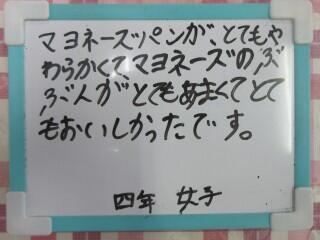 マヨネーズパンが、とてもや
わらかくてマヨネーズのぶ
ぶんがとてもあまくてとて
もおいしかったです。
四年 女子